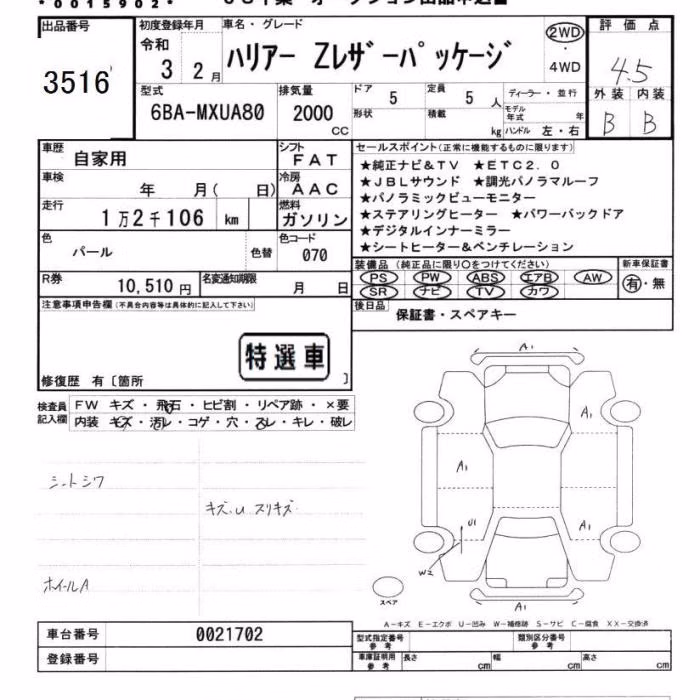 *0015902*
出品番号
3516
初度登録年月
令和
3 2月
車名・グレード
ハリアー Zレザーパッケージ
2WD
・
4WD
評価点
4.5
外装 内装
B B
型式
6BA-MXUA80
排気量
2000
CC
ドア
5
定員
5 人
形状
積載
kg
ディーラー・並行
モデル年式 年
ハンドル 左・右
車歴
自家用
シフト
FAT
車検
年 月( 日)
冷房
AAC
走行
1万2千106 km
燃料
ガソリン
色
パール
色替
色コード
070
R券
10,510円
名変通知期限
月 日
セールスポイント(正常に機能するものに限ります)
★純正ナビ&TV ★ETC2.0
★JBLサウンド ★調光パノラマルーフ
★パノラミックビューモニター
★ステアリングヒーター ★パワーバックドア
★デジタルインナーミラー
★シートヒーター&ベンチレーション
装備品(純正品に限り○をつけてください)
PS PW ABS エアB AW
SR ナビ TV カワ
新車保証書
有・無
後日品
保証書・スペアキー
注意事項申告欄(不具合内容等は具体的に記入して下さい)
特選車
修復歴 有〔箇所 〕
検査員記入欄
FW キズ・飛石・ヒビ割・リペア跡・×要
内装 キズ・汚レ・コゲ・穴・スレ・キレ・破レ
シートシワ
キズ.U スリキズ
ホイールA
A1
A1
A1
U1
A1
W2
A1
スペア
A−キズ E−エクボ U−凹み W−補修跡 S−サビ C−腐食 XX−交換済
車台番号
0021702
登録番号
型式指定番号
参考
類別区分番号
参考
車庫証明用
参考
長さ cm
幅 cm
高さ cm